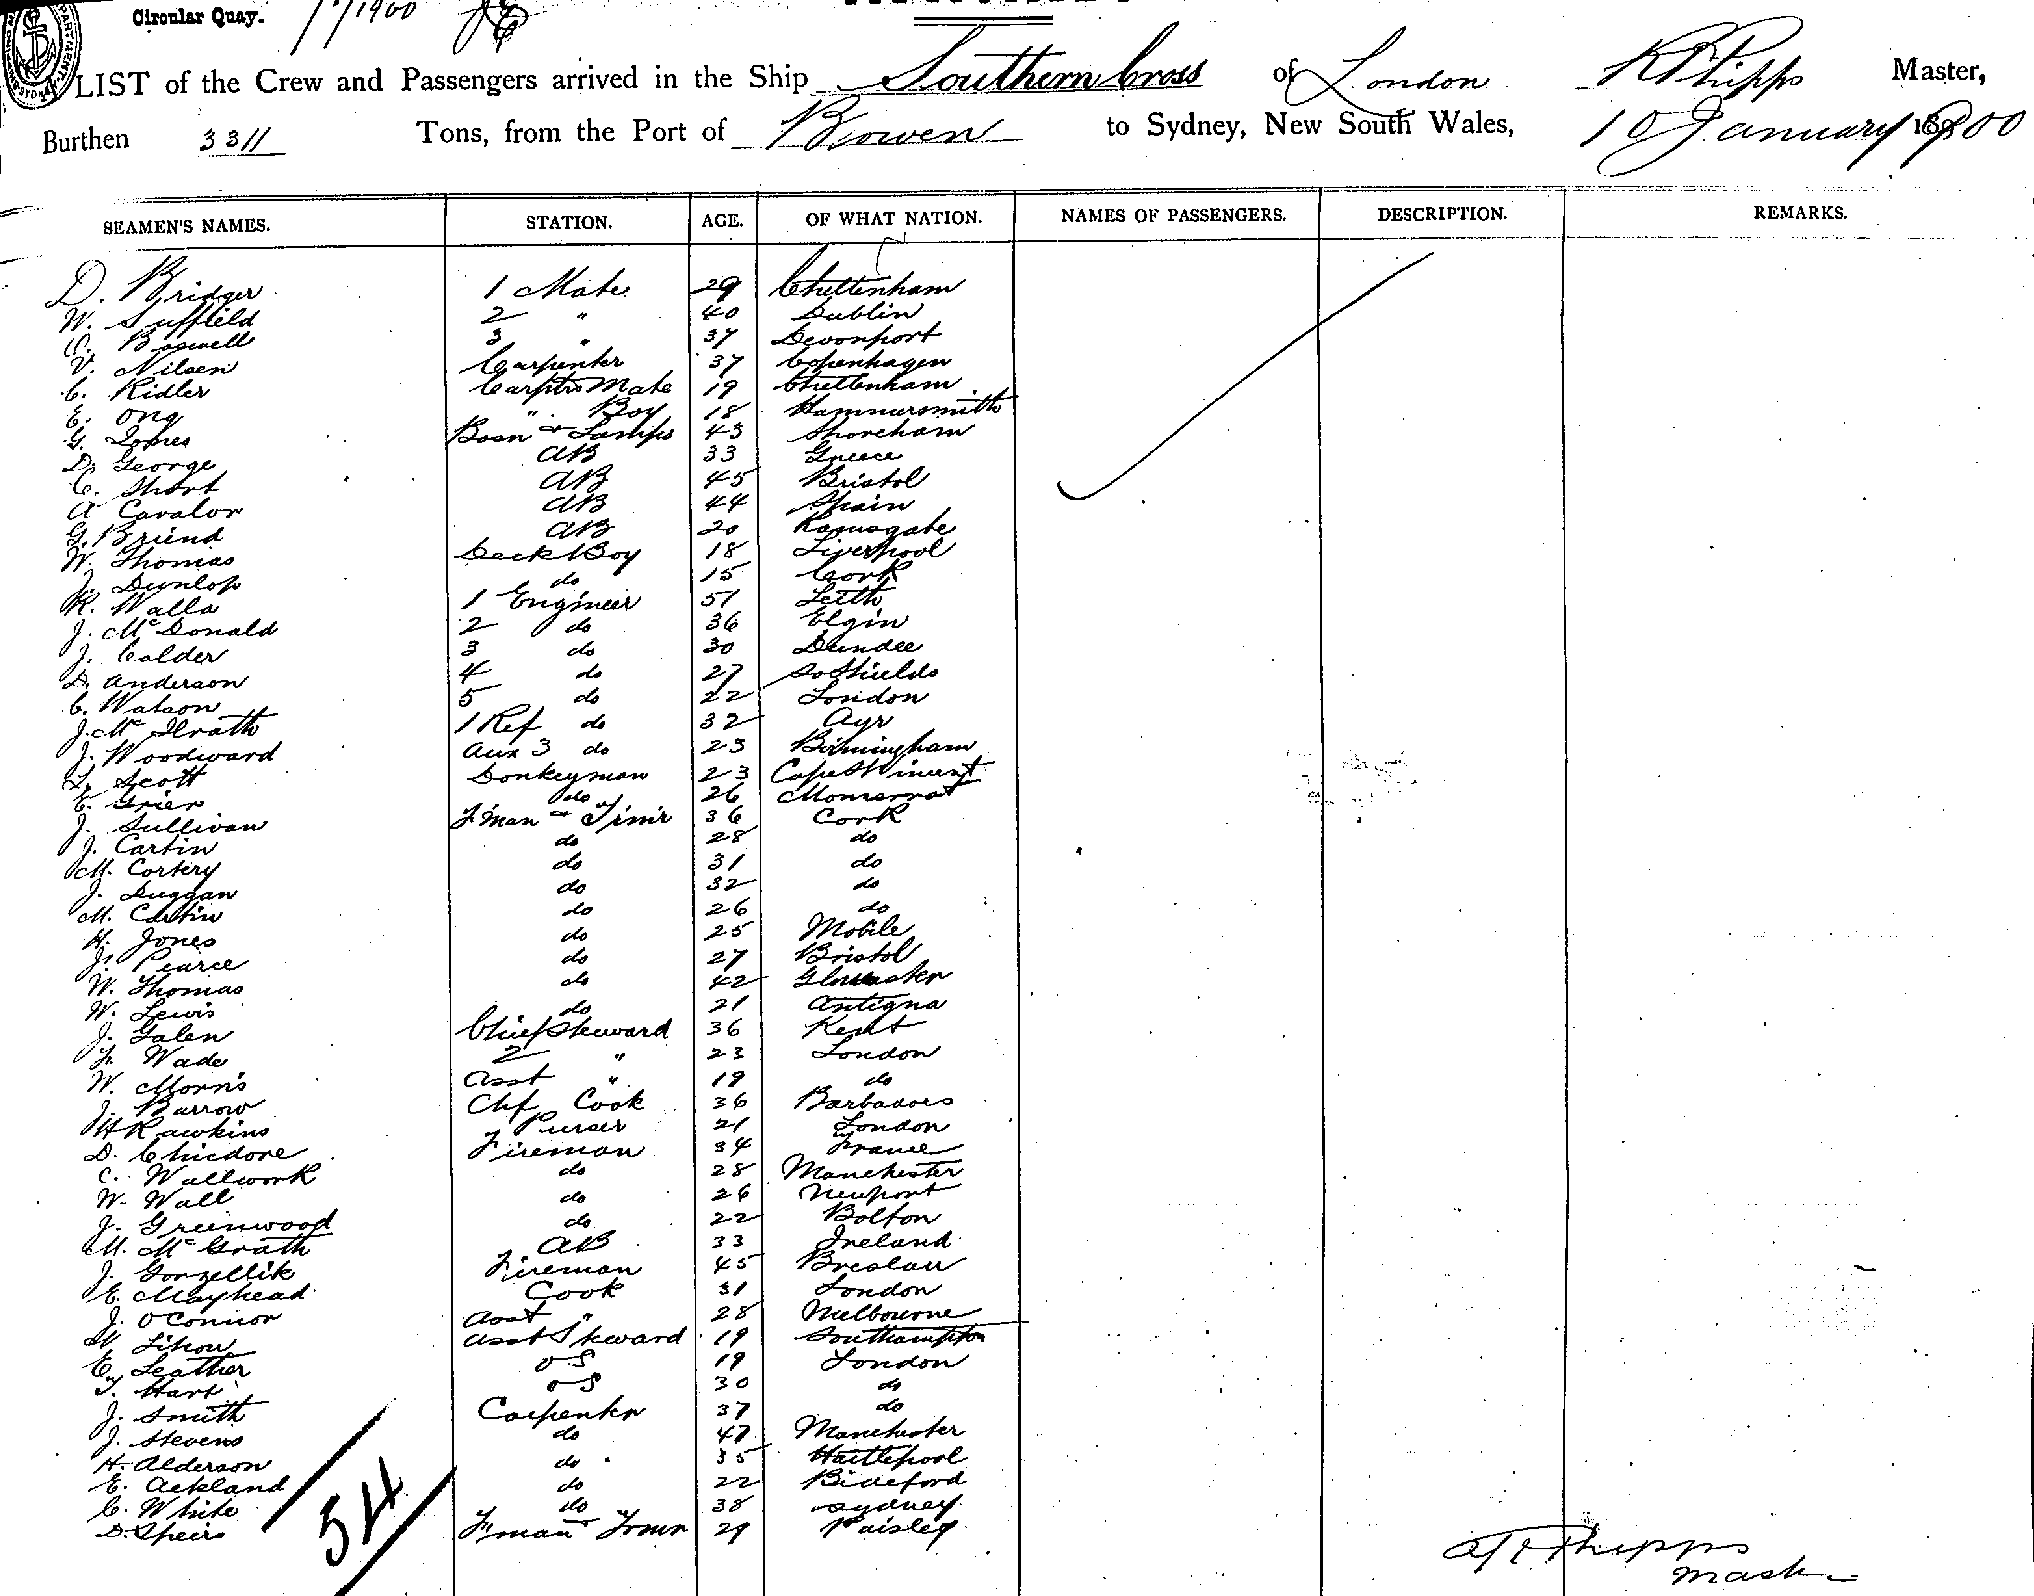 Circular Quay.
LIST of the Crew and Passengers arrived in the Ship Southern Cross of London R Phipps Master,
Burthen 3311 Tons, from the Port of Bowen to Sydney, New South Wales, 10 January 1900
SEAMEN'S NAMES. STATION. AGE. OF WHAT NATION. NAMES OF PASSENGERS. DESCRIPTION. REMARKS.
D. Bridger 1 Mate 29 Cheltenham
W. Suffield 2 " 40 Dublin
C. Boswell 3 " 37 Devonport
V. Nilsen Carpenter 37 Copenhagen
C. Ridler Carptrs Mate 19 Cheltenham
E. Ong " Boy 18 Hammersmith
G. Jones Bosn & Lamps 43 Shoreham
D. George AB 33 Greece
C. Short AB 45 Bristol
A Cavalor AB 44 Spain
G. Briend AB 20 Ramsgate
W. Thomas Deck Boy 18 Liverpool
J. Dunlop do 15 Cork
R. Walla 1 Engineer 51 Leith
J. McDonald 2 do 36 Elgin
J. Calder 3 do 30 Dundee
D. Anderson 4 do 27 So Shields
C. Watson 5 do 22 London
J. McIlrath 1 Ref do 32 Ayr
J. Woodward Aux 3 do 23 Birmingham
L. Scott Donkeyman 23 Cape St Vincent
E. Grier do 26 Monserrat
J. Sullivan F'man & Trimr 36 Cork
J. Cartin do 28 do
M. Cortery do 31 do
J. Duggan do 32 do
M. Cartin do 26 do
H. Jones do 25 Mobile
J. Pearce do 27 Bristol
W. Thomas do 42 Gloucester
W. Lewis do 21 Antigna
J. Galen Chief Steward 36 Kent
F. Wade 2 " 23 London
W. Morris Asst " 19 do
J. Barrow Chf Cook 36 Barbadoes
H Rawkins Purser 21 London
D. Chiedore Fireman 34 France
C. Wallwork do 28 Manchester
W. Wall do 26 Newport
J. Greenwood do 22 Bolton
M. McGrath AB 33 Ireland
J. Gorzellik Fireman 45 Breslau
E. Mayhead Cook 31 London
J. O'Connor Asst " 28 Melbourne
Lihou Asst Steward 19 Southampton
E. Leather OS 19 London
T. Hart OS 30 do
J. Smith Carpenter 37 do
J. Stevens do 47 Manchester
H. Alderson do 35 Hartlepool
E. Ackland do 22 Bideford
C. White do 38 Sydney
D. Speirs F'man Trimr 29 Paisley
54
Phipps
Master